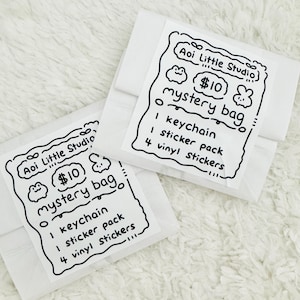 Aoi Little Studio
$10
mystery bag
1 keychain
1 sticker pack
4 vinyl stickers
Aoi Little Studio
$10
mystery bag
1 keychain
1 sticker pack
4 vinyl stickers